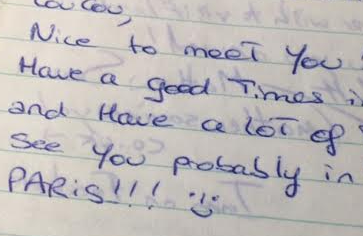 Coucou,
Nice to meet you
Have a good Times
and Have a lot of
See you probably in
PARis!!! :)